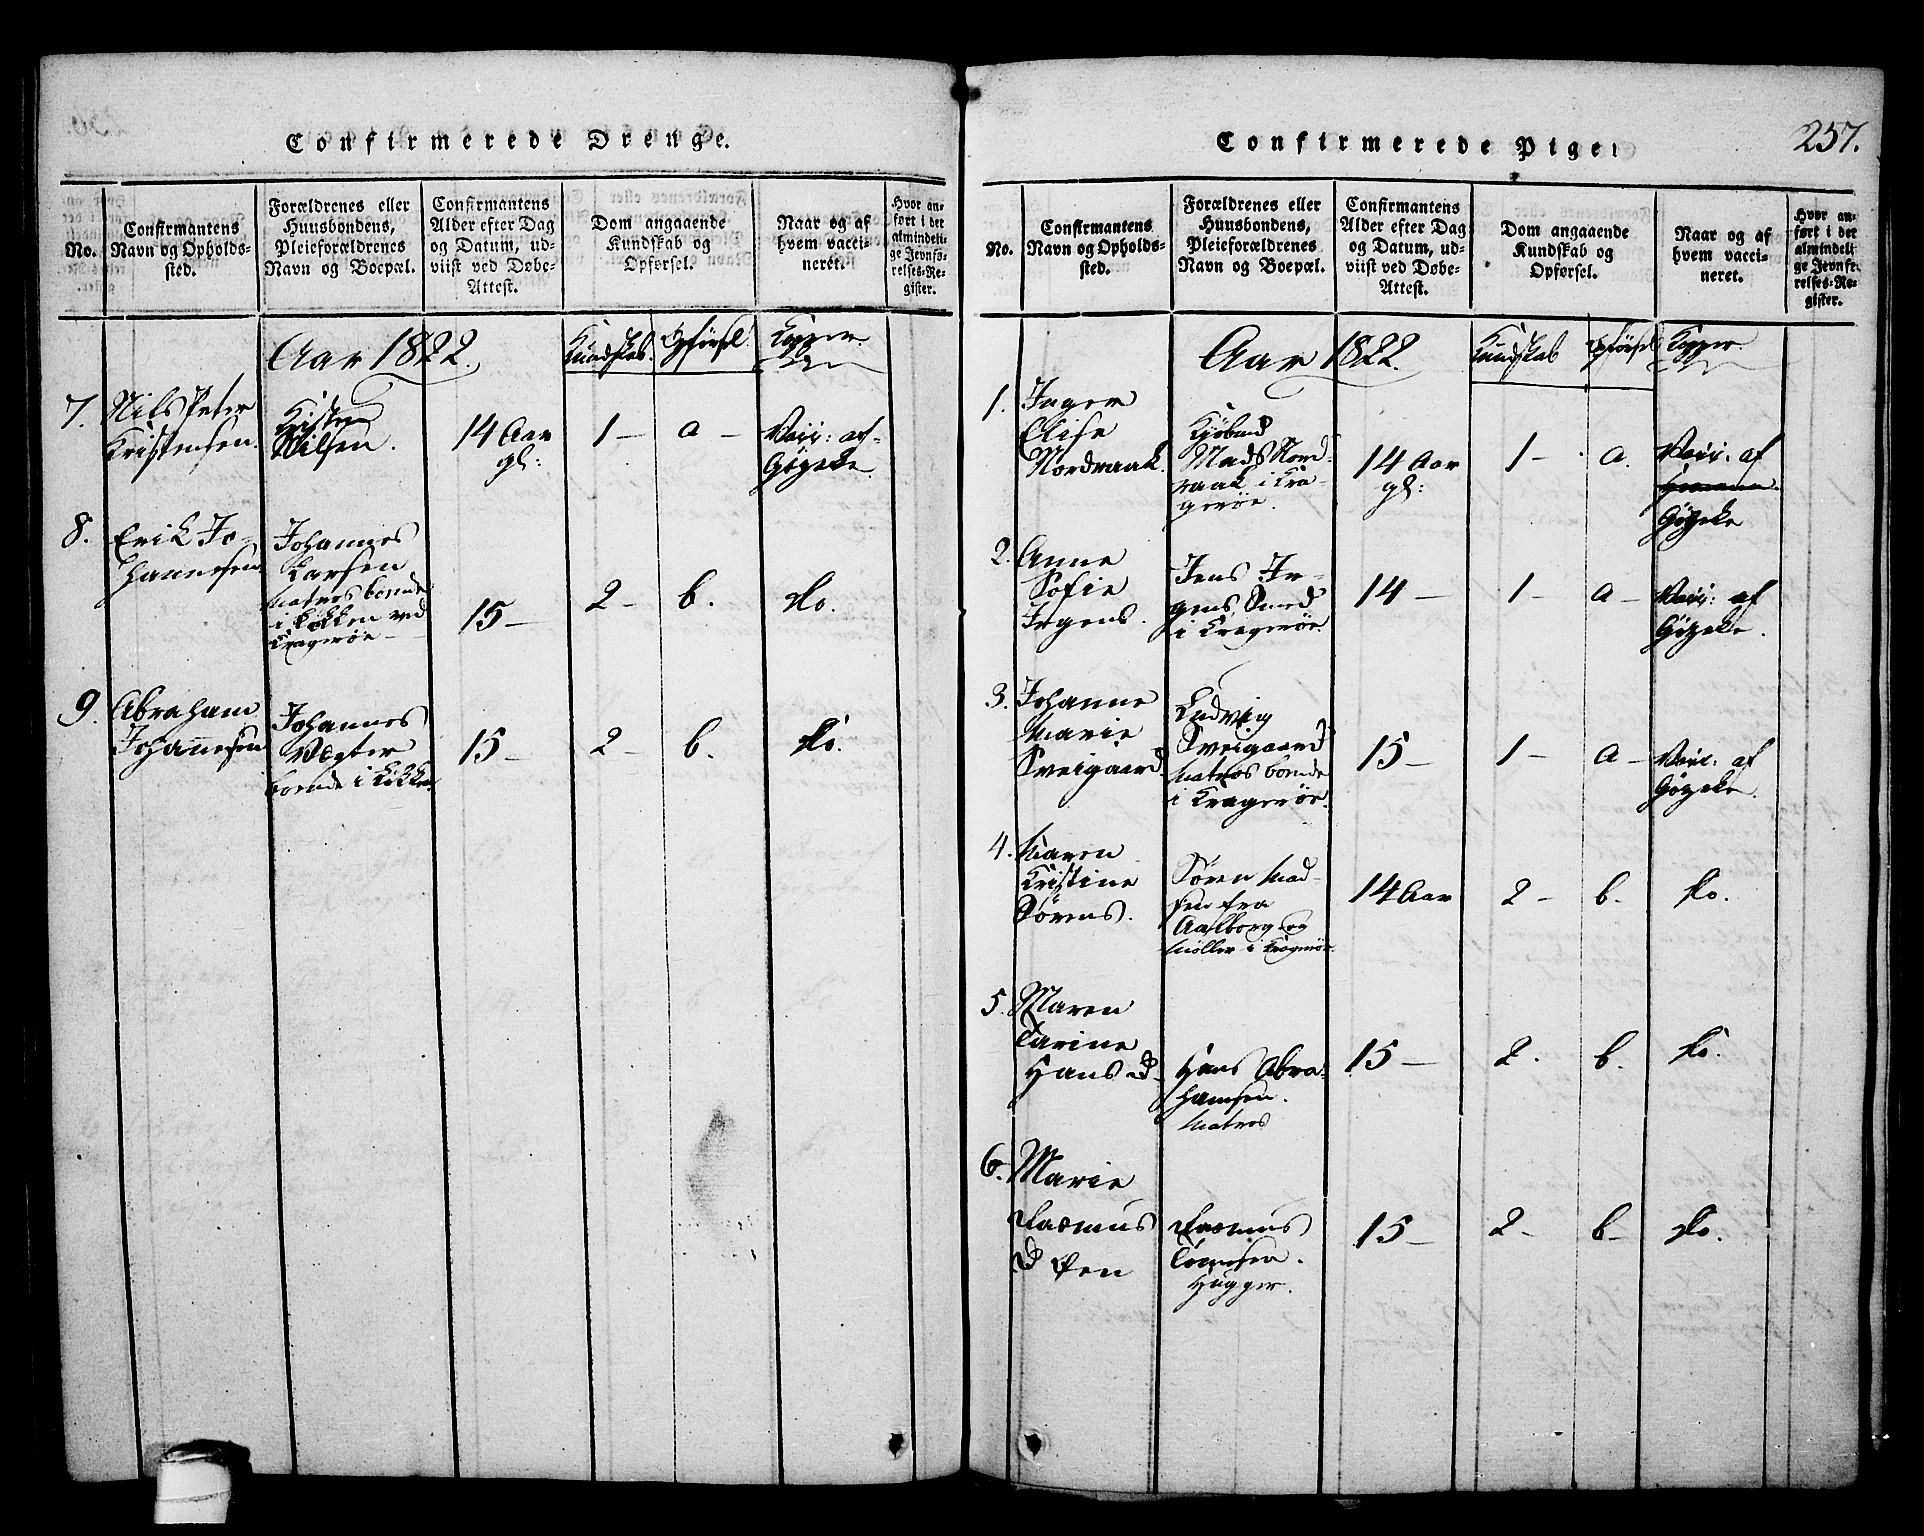 Confirmerede Drenge.
No.
Confirmantens
Navn og Opholds-
sted.
Forældrenes eller
Huusbondens,
Pleieforældrenes
Navn og Boepæl.
Confirmantens
Alder efter Dag
og Datum, ud-
viist ved Døbe-
Attest.
Dom angaaende
Kundskab og
Opførsel.
Naar og af
hvem vacci-
neret.
Hvor an-
ført i det
almindeli-
ge Jevnfø-
relses-Re-
gister.
Aar 1822.
Kundskab.
Opførsel
Kopper
7.
Nils Peter
Kristensen.
Nilsen.
14 Aar
gl:
1 -
a -
Vacc: af
Gøzeke
8.
Erik Jo-
hannesen
Johannes
Larsen
Matros boende
i Kikken ved
Kragerøe -
15 -
2 -
b.
Do.
9.
Abraham
Johannesen
Johannes
Vegter
boende i Kikken
15 -
2 -
b.
Do.
Confirmerede Piger
257.
No.
Confirmantens
Navn og Opholds-
sted.
Forældrenes eller
Huusbondens,
Pleieforældrenes
Navn og Boepæl.
Confirmantens
Alder efter Dag
og Datum, ud-
viist ved Døbe-
Attest.
Dom angaaende
Kundskab og
Opførsel.
Naar og af
hvem vacci-
neret.
Hvor an-
ført i det
almindeli
ge Jevnfø-
relses-Re-
gister.
Aar 1822.
Kundskab
Opførsel
Kopper.
1.
Inger
Elise
Nordraak.
Kjøbmd
Mads Nord-
raak i Kra-
gerøe.
14 Aar
gl:
1 -
a.
Vacc: af
Gøzeke
2.
Anne
Sofie
Jrgens.
Jens Jr-
gens, Smed
i Kragerøe.
14 -
1 -
a -
Vacc: af
Gøzeke.
3.
Johanne
Marie
Sveigaard
Ludvig
Sveigaard
Matros boende
i Kragerøe.
15 -
1 -
a -
Vacc: af
Gøzeke.
4.
Maren
Kristine
Sørens.
Søren Mad-
sen fra
Aalborg og
Møller i Kragerøe.
14 Aar
2 -
b.
Do.
5.
Maren
Tarine
Hans D-
Hans Abra-
hamsen.
Matros
15 -
2.
b.
Do.
6.
Marie
Rasmus
D
Rasmus
Hugger.
15 -
2 -
b -
Do.